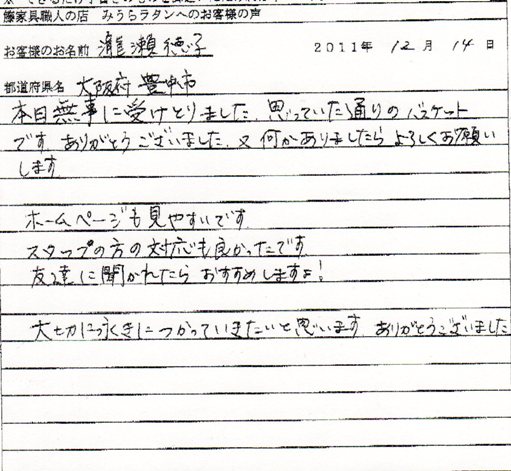 藤家具職人の店 みうらラタンへのお客様の声
お客様のお名前 瀬 徳子 2011年 12月 14日
都道府県名 大阪府 豊中市
本日無事に受けとりました。思っていた通りのバスケット
です。ありがとうございました。又何かありましたらよろしくお願い
します。
ホームページも見やすいです
スタッフの方の対応も良かったです
友達に聞かれたらおすすめしますよ!
大切に永きにつかっていきたいと思います。ありがとうございました